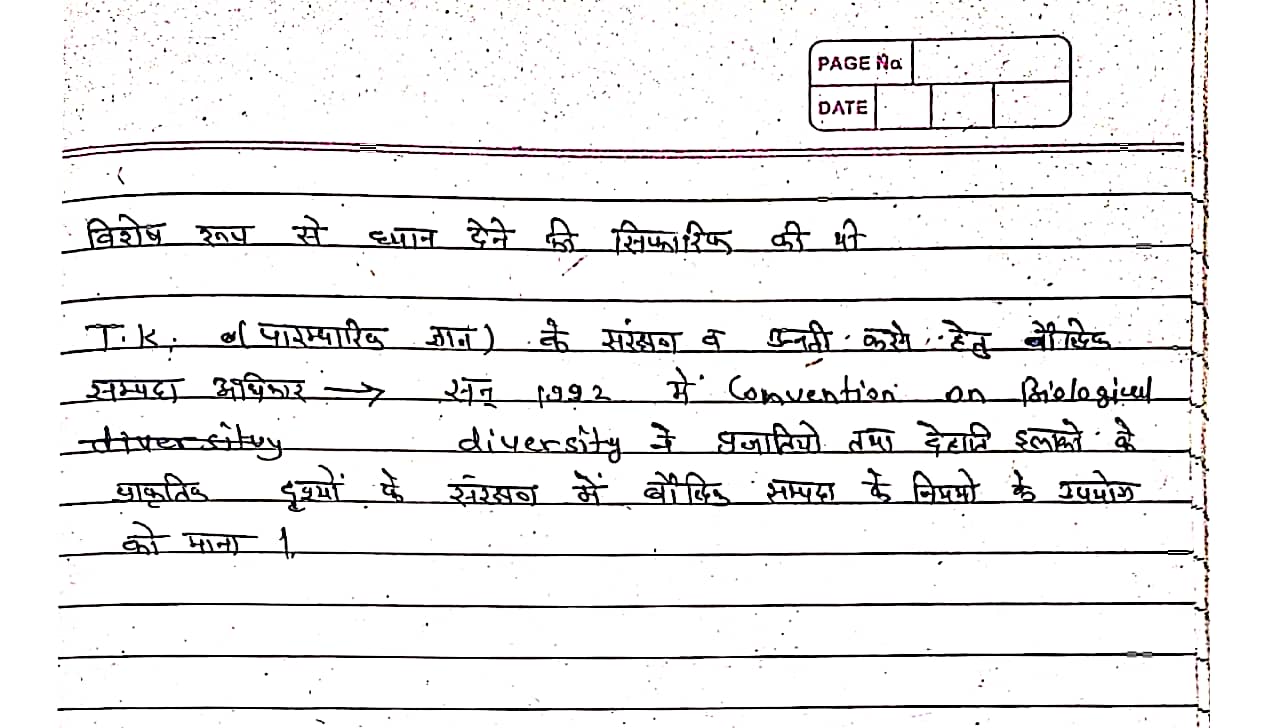 PAGE No
DATE
विशेष रूप से ध्यान देने की सिफारिक की थी
T.K. (पारम्पारिक ज्ञान) के संरक्षण व उन्नती करने हेतु बौद्धिक
सम्पदा अधिकार → सन् 1992 में Convention on Biological
diversity ने प्रजातियो तथा देहाति इलाको के
प्राकृतिक दृश्यों के संरक्षण में बौद्धिक सम्पदा के नियमो के उपयोग
को माना ।